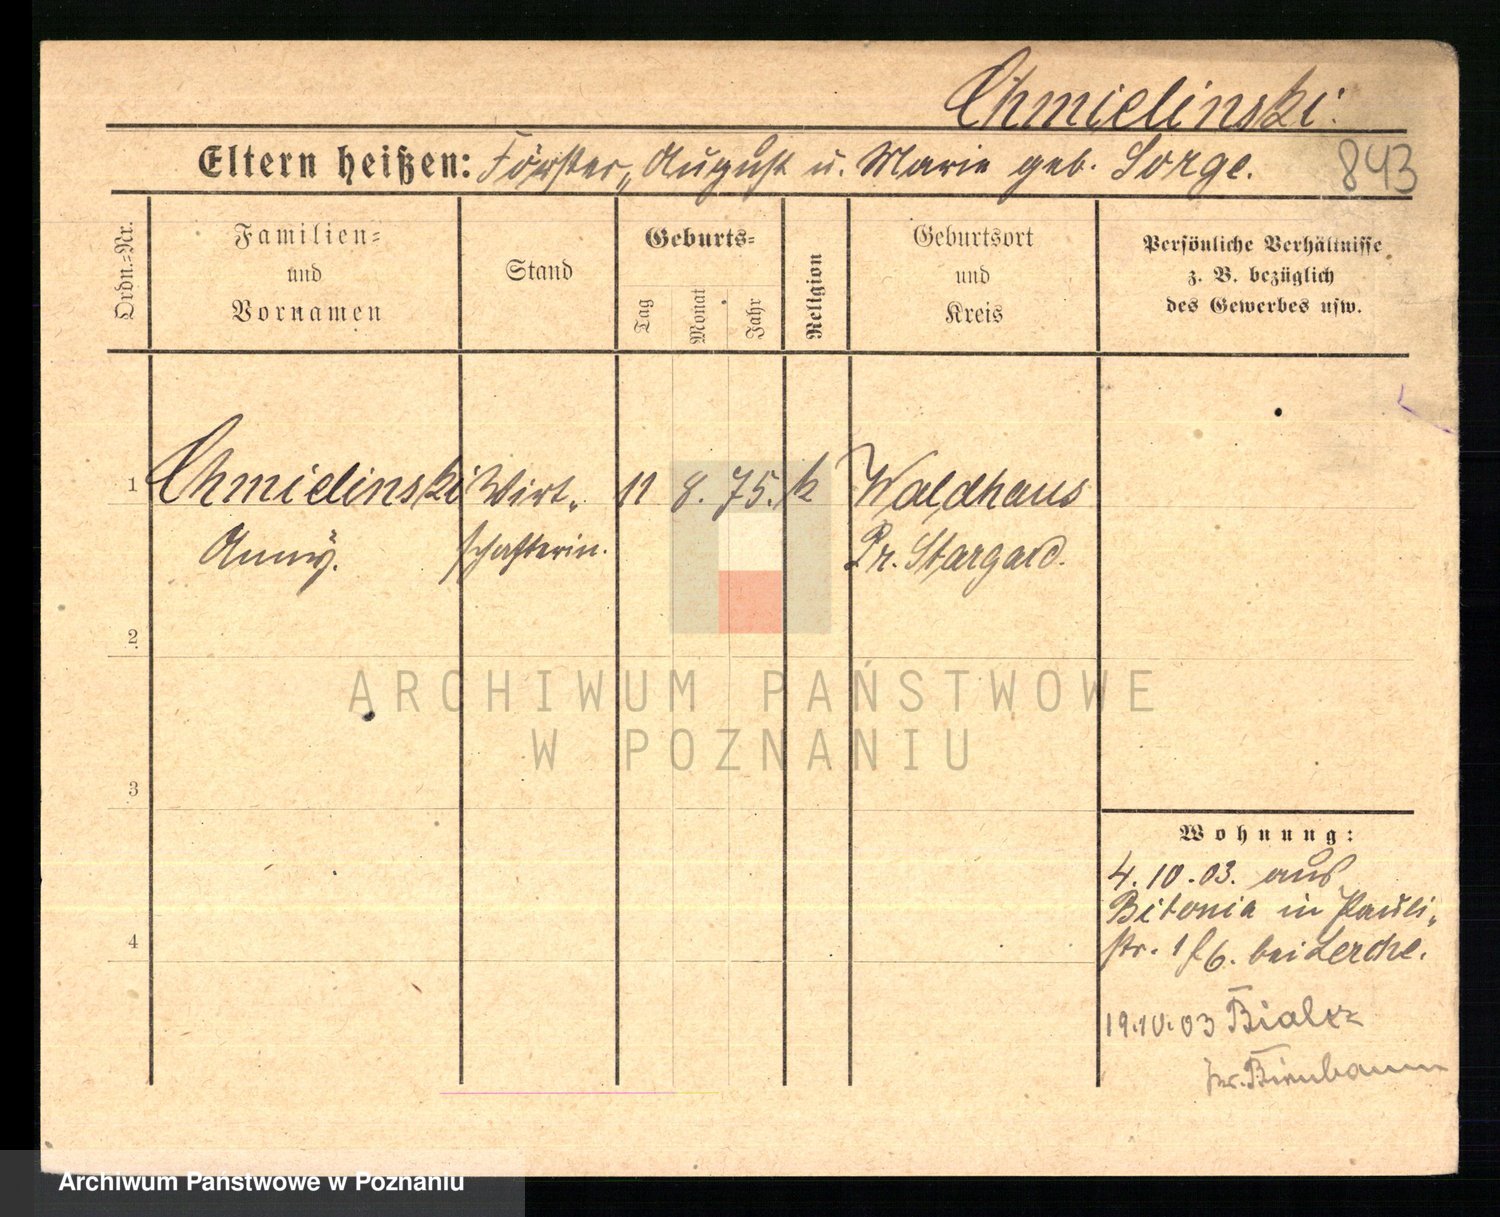 Chmielinski.
Eltern heißen: Förster, August u. Marie geb. Sorge.
843
Ordn.=Nr.
Familien=
und
Vornamen
Stand
Geburts=
Tag
Monat
Jahr
Religion
Geburtsort
und
Kreis
Persönliche Verhältnisse
z. B. bezüglich
des Gewerbes usw.
1
Chmielinski
Anny.
Wirt-
schafterin.
11
8.
75.
k
Waldhaus
Pr. Stargard.
2
ARCHIWUM PAŃSTWOWE
W POZNANIU
3
4
Wohnung:
4.10.03. aus
Bitonia in Pauli-
str. 1 bei Lerche.
19.10.03
Kr. Birnbaum
Archiwum Państwowe w Poznaniu